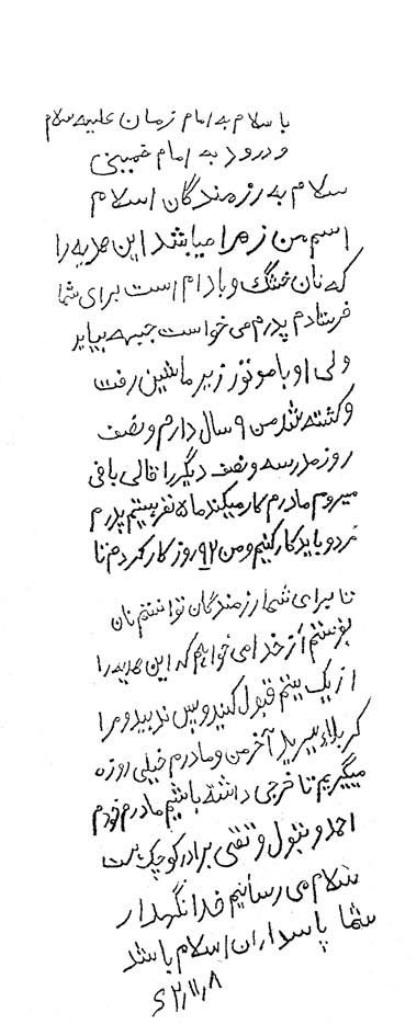 با سلام به امام زمان علیه سلام
و درود به امام خمینی
سلام به رزمندگان اسلام
اسم من زهرا میباشد این هدیه را
که نان خشگ و بادام است برای شما
فرستادم پدرم می خواست جبهه بیاید
ولی او با موتور زیر ماشین رفت
و کشته شد من ۹ سال دارم و نصف
روز مدرسه و نصف دیگر را قالی بافی
میروم مادرم کار میکند ما ۵ نفر هستیم پدرم
مرد و باید کار کنیم و من ۹۲ روز کار کردم تا
تا برای شما رزمندگان توانستم نان
بفرستم از خدا می خواهم که این هدیه را
از یک یتیم قبول کنید و پس ندهید و مرا
کربلاء ببرید آخر من و مادرم خیلی روزه
میگیریم تا خرجی داشته باشیم مادرم خودم
احمد و بتول و تقی برادر کوچک است
سلام می رسانیم خدا نگهدار
شما پاسداران اسلام باشد
۶۲٫۱۱٫۸